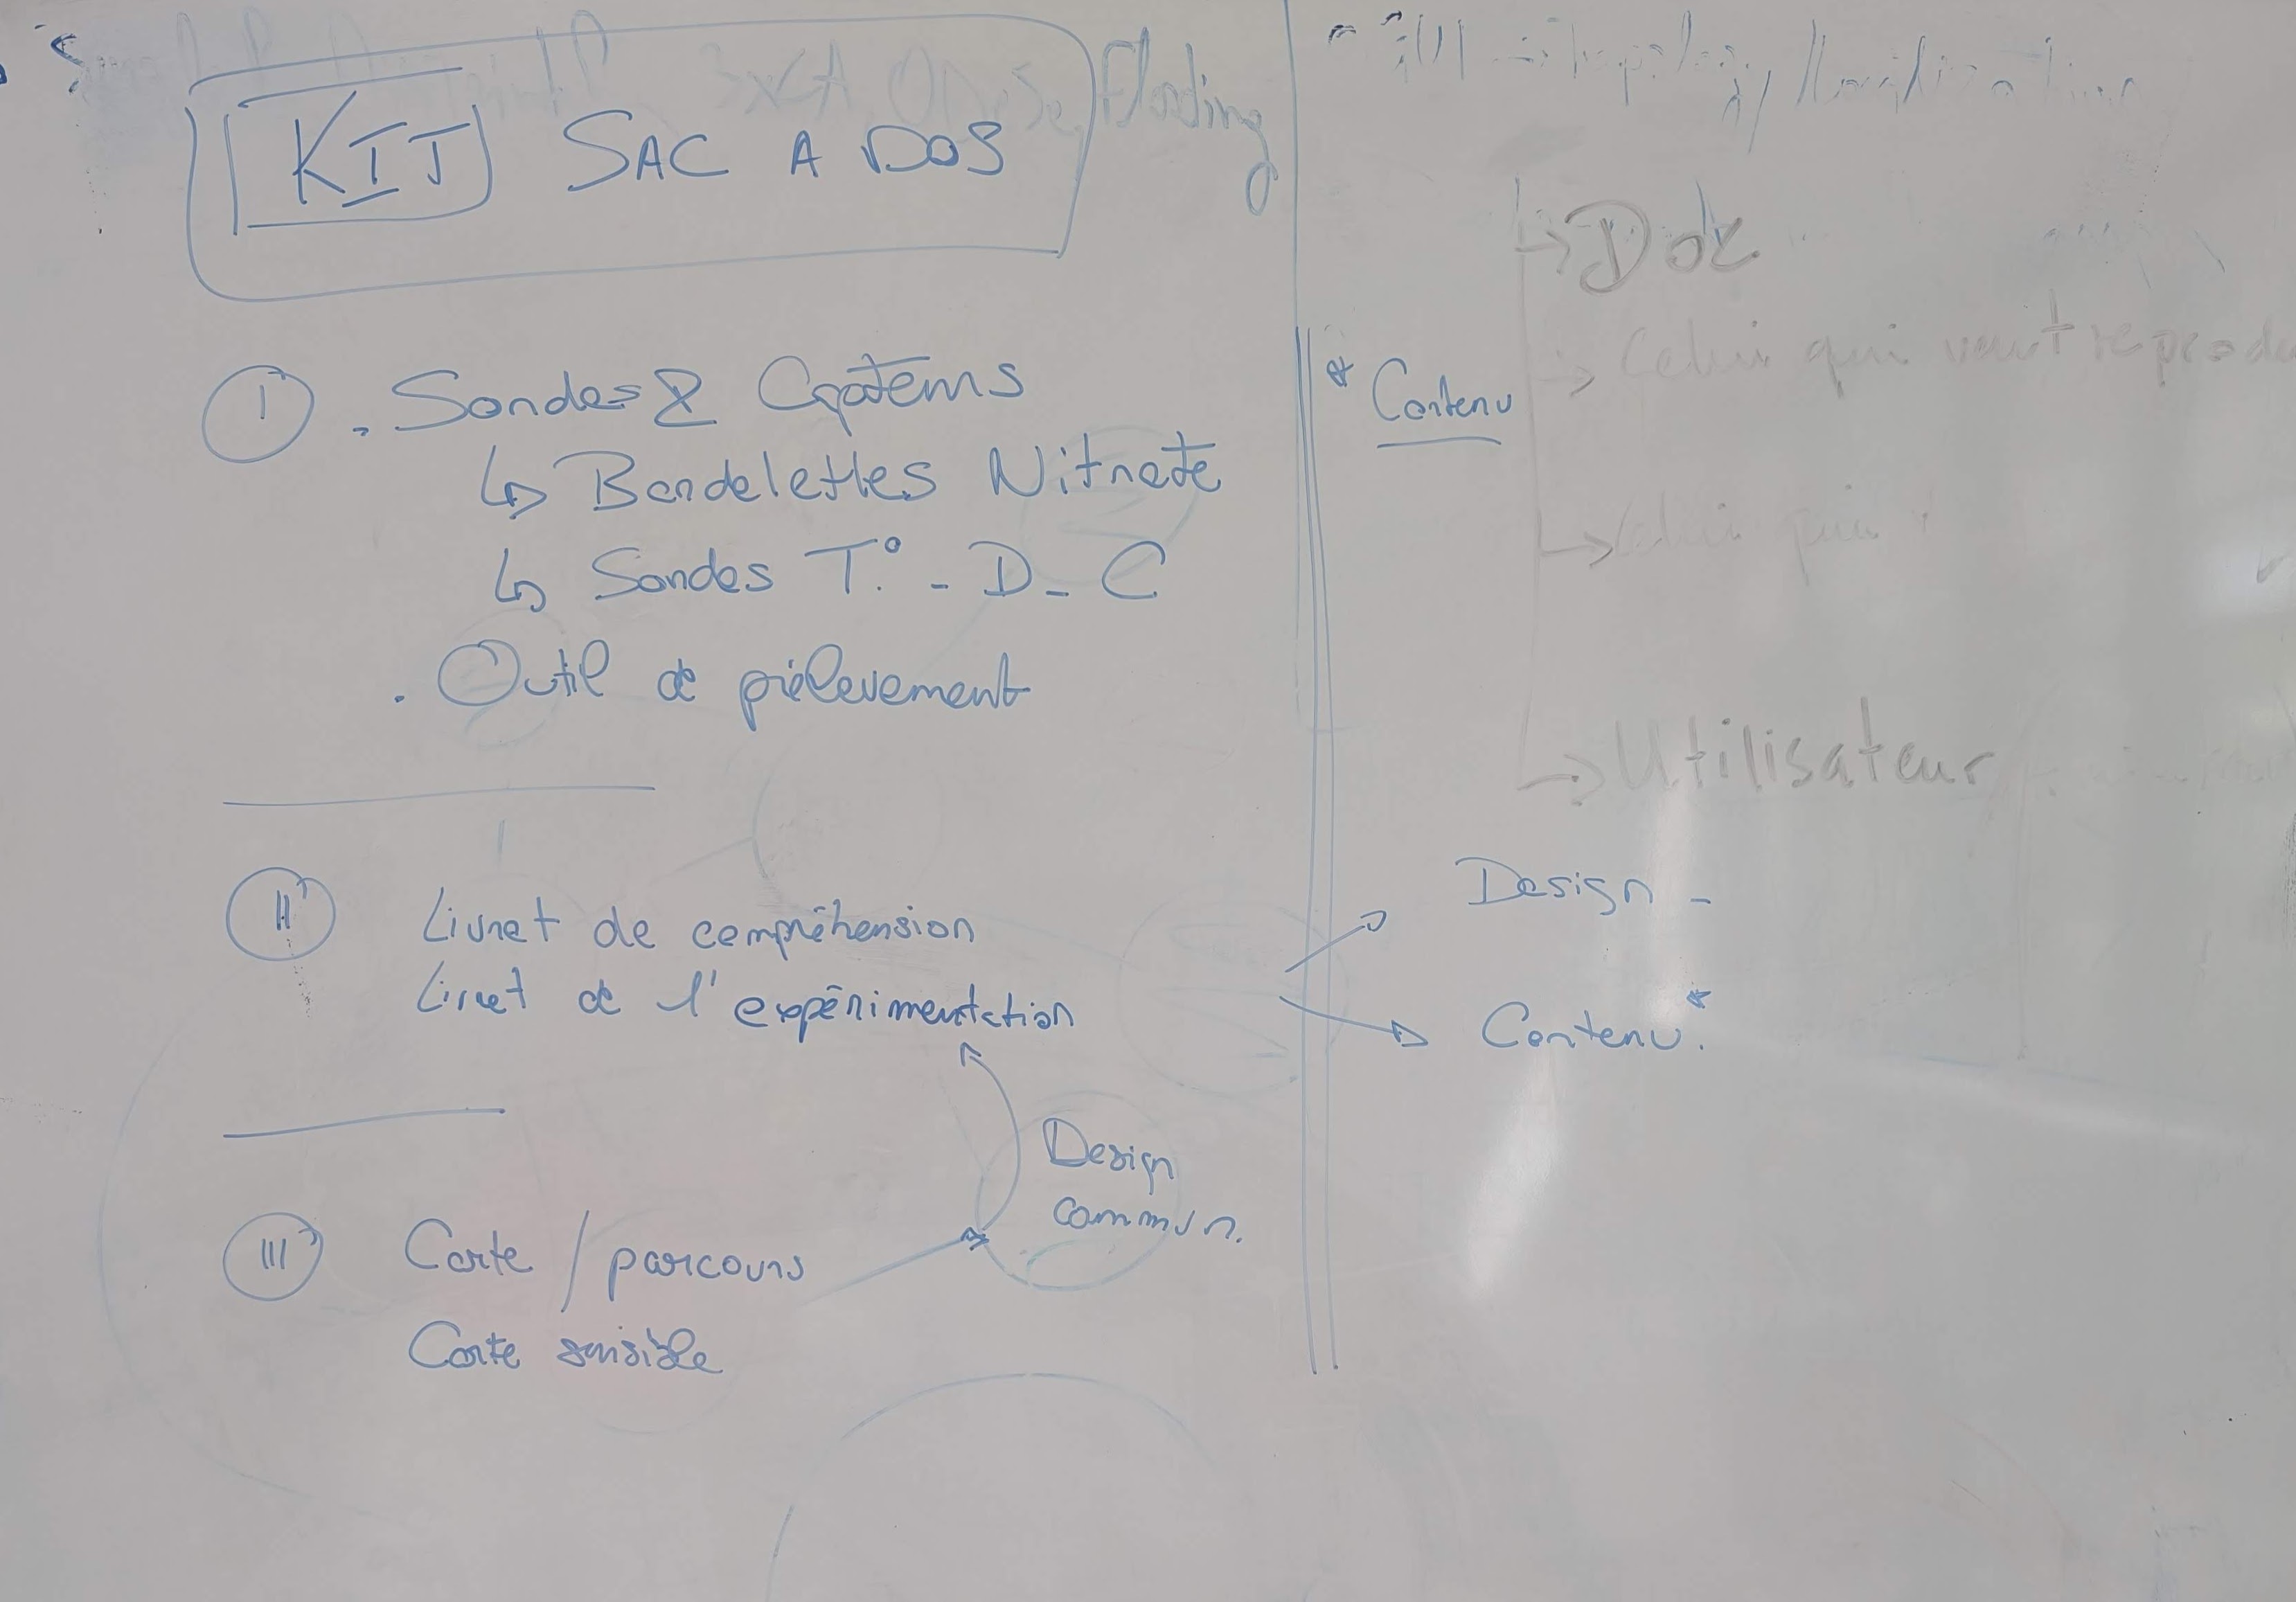 KIT SAC A DOS
I . Sondes & Capteurs
↳ Bandelettes Nitrate
↳ Sondes T.° - D - C
. Outil de prélevement
II Livret de compréhension
Livret de l'expérimentation
III Carte / parcours
Carte sensible
Design
commun.
Floating
→ Dok
→ Celui qui veut reprodu
* Contenu
↳ Celui qui
↳ Utilisateur
Design -
Contenu.*